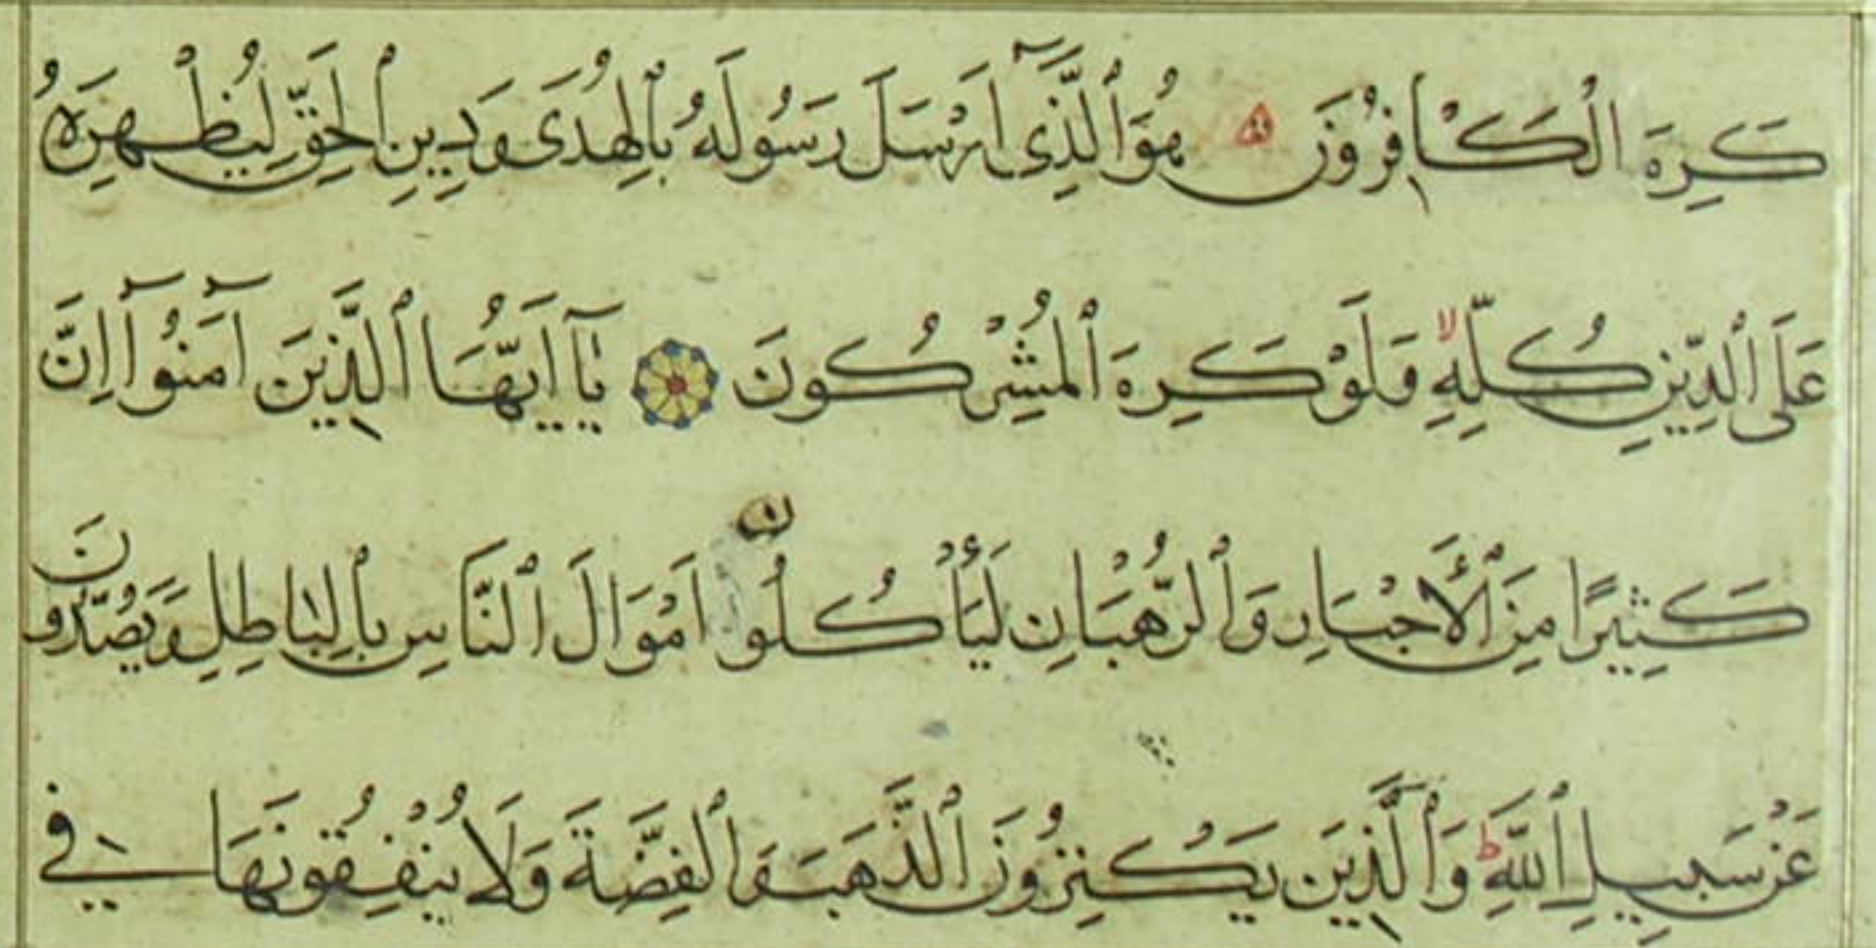 كَرِهَ الْكَافِرُونَ هُوَ ٱلَّذِىٓ اَرْسَلَ رَسُولَهُ بِٱلْهُدَى وَدِينِ ٱلْحَقِّ لِيُظْهِرَهُ
عَلَى ٱلدِّينِ كُلِّهِ ۙ وَلَوْ كَرِهَ ٱلْمُشْرِكُونَ يَٓا اَيُّهَا ٱلَّذِينَ آمَنُوٓا اِنَّ
كَثِيرًا مِنَ ٱلْأَحْبَارِ وَٱلرُّهْبَانِ لَيَأْكُلُونَ اَمْوَالَ ٱلنَّاسِ بِٱلْبَاطِلِ وَيَصُدُّونَ
عَنْ سَبِيلِ ٱللَّهِ ۗ وَٱلَّذِينَ يَكْنِزُونَ ٱلذَّهَبَ وَٱلْفِضَّةَ وَلَا يُنْفِقُونَهَا فِي